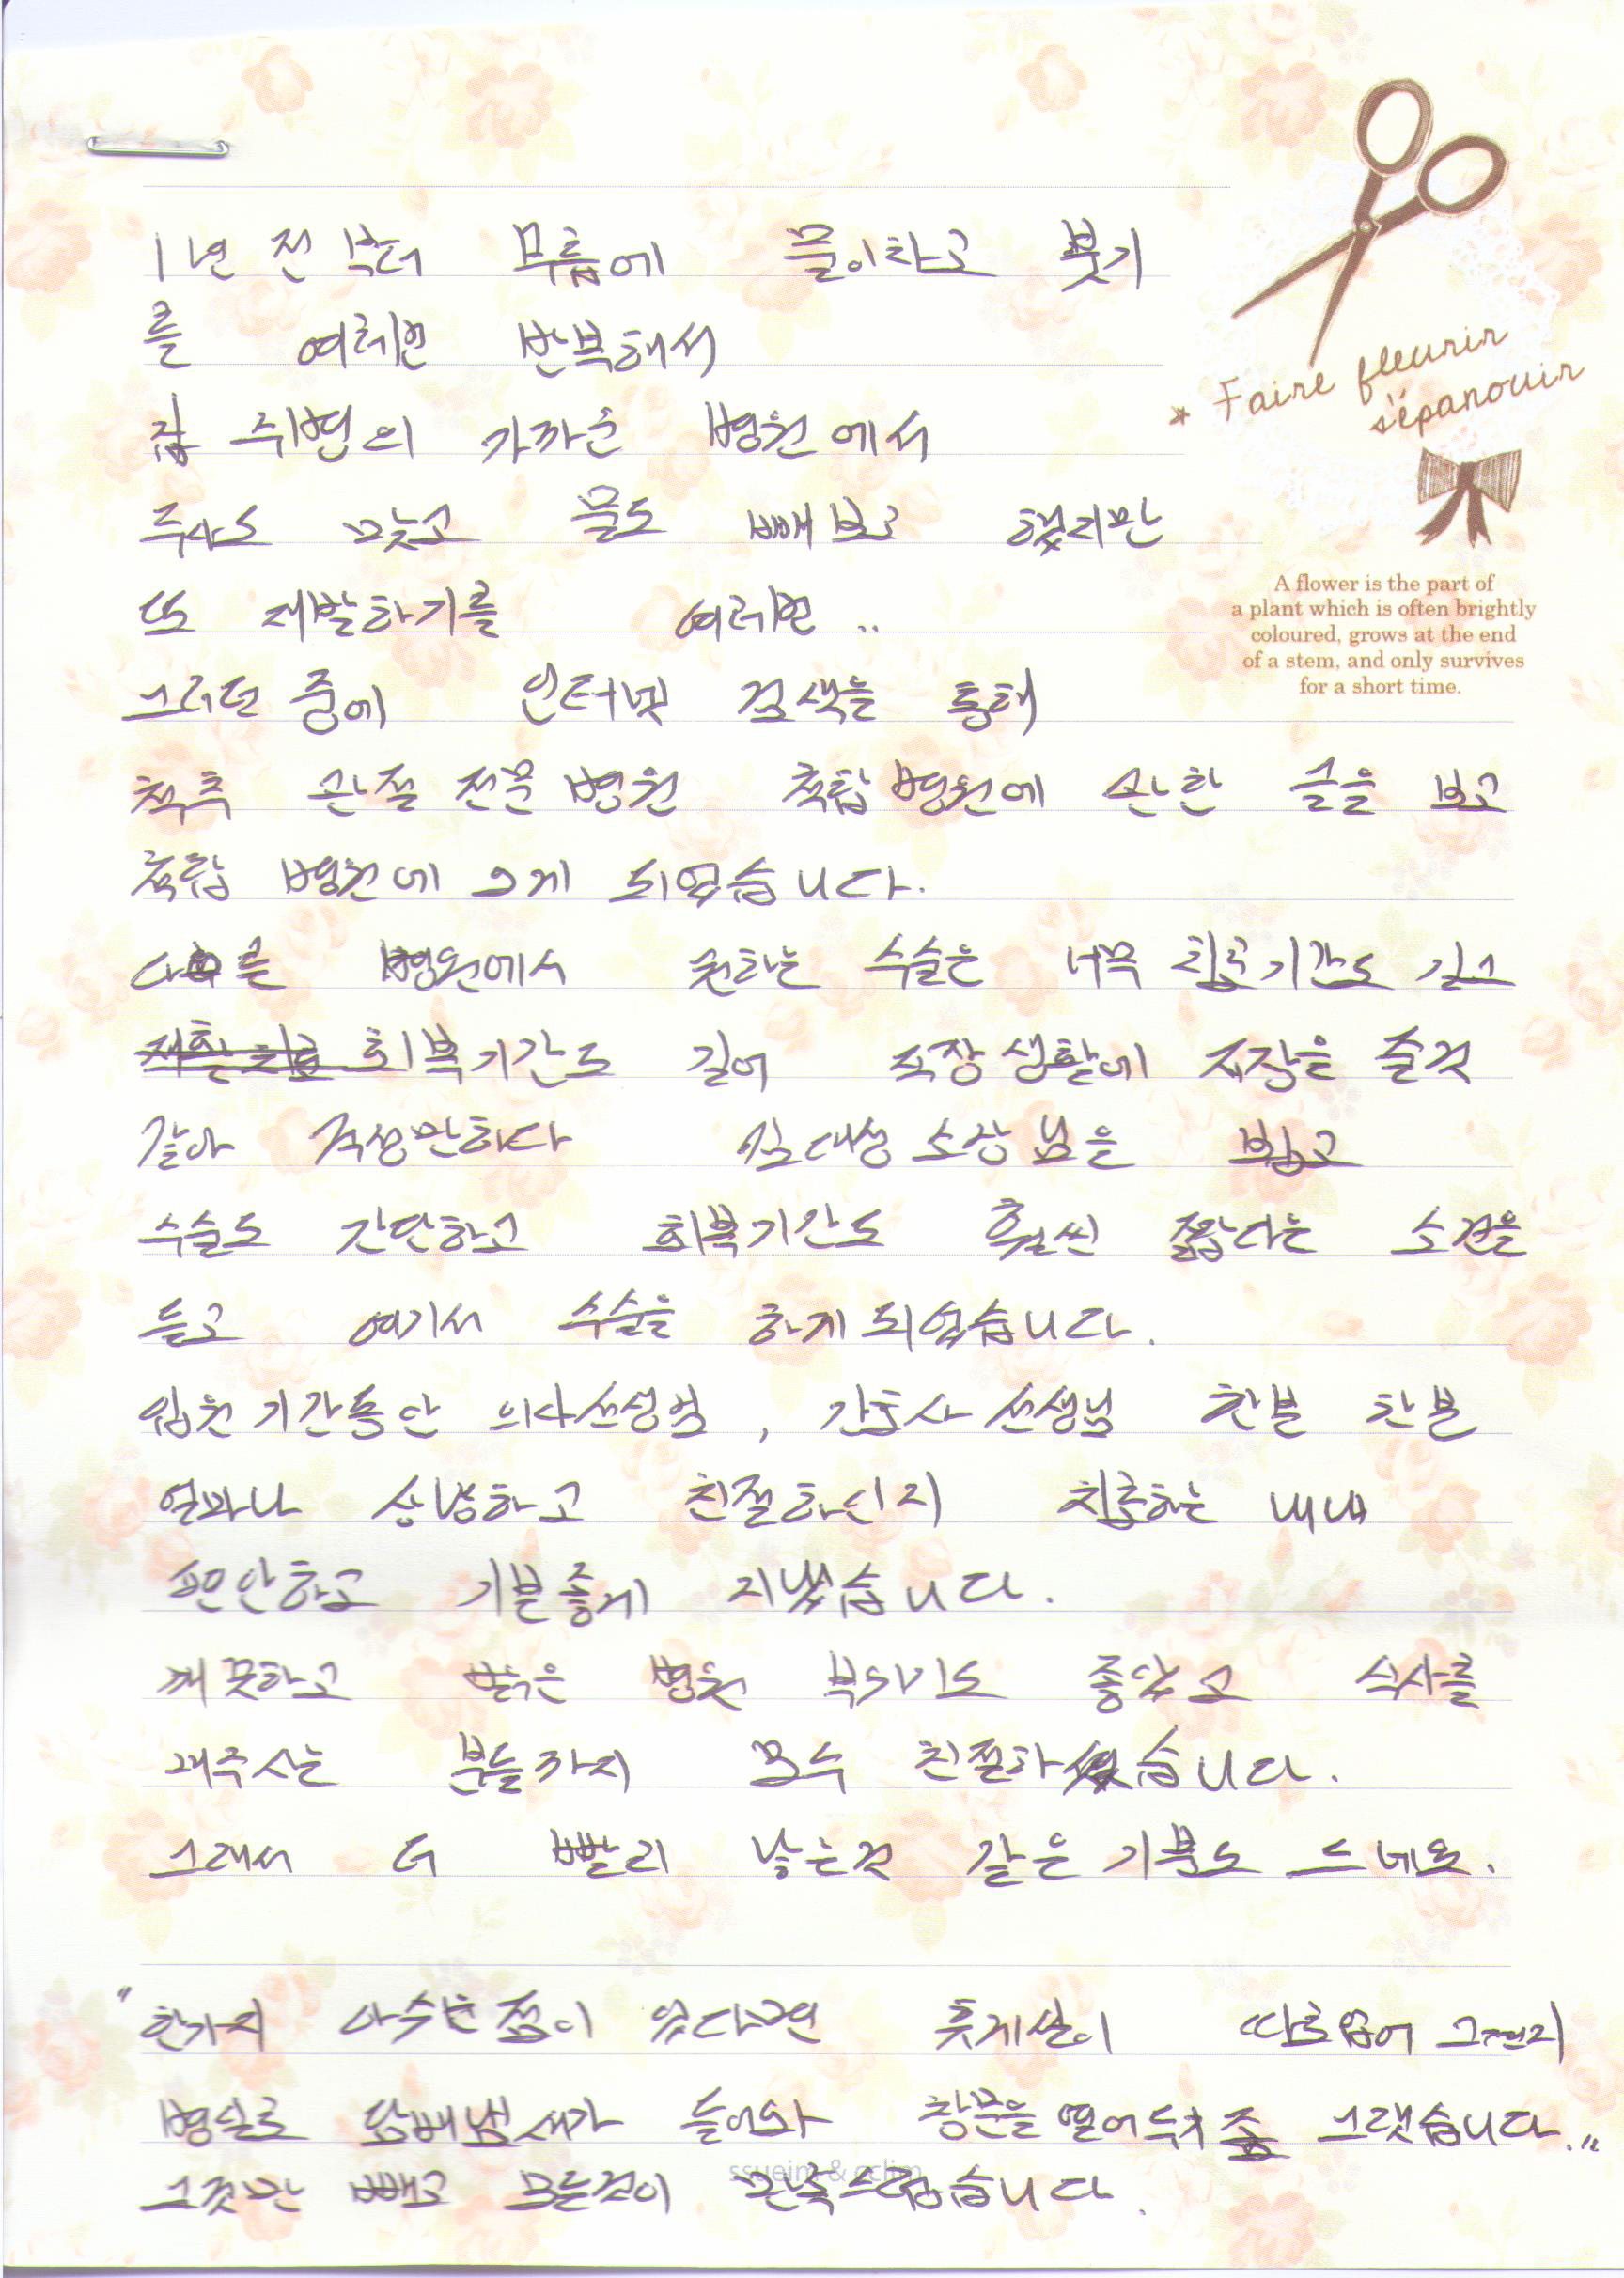 1년 전 부터 무릎에 물이차고 붓기
를 여러번 반복해서
집 주변의 가까운 병원에서
주사도 맞고 물도 빼보고 했지만
또 재발하기를 여러번 ..
그러던 중에 인터넷 검색을 통해
척추 관절 전문 병원 척탑병원에 관한 글을 보고
척탑 병원에 오게 되었습니다.
다른 병원에서 권하는 수술은 너무 치료기간도 길고
회복기간도 길어 직장생활에 지장을 줄것
같아 걱정만하다 임대성 소장님을 뵙고
수술도 간단하고 회복기간도 훨씬 짧다는 소견을
듣고 여기서 수술을 하게되었습니다.
입원기간동안 의사선생님, 간호사선생님 한분 한분
얼마나 상냥하고 친절하신지 치료하는 내내
편안하고 기분좋게 지냈습니다.
깨끗하고 밝은 병원 분위기도 좋았고 식사를
가져주시는 분들까지 모두 친절하셨습니다.
그래서 더 빨리 낳는것 같은 기분도 드네요.
"한가지 아쉬운점이 있다면 휴게실이 따로없어 그런지
병실로 담배냄새가 들어와 창문을 열어두기 좀 그랬습니다."
그것만 빼고 모든것이 만족스럽습니다.
* Faire fleurir
s'épanouir
A flower is the part of
a plant which is often brightly
coloured, grows at the end
of a stem, and only survives
for a short time.